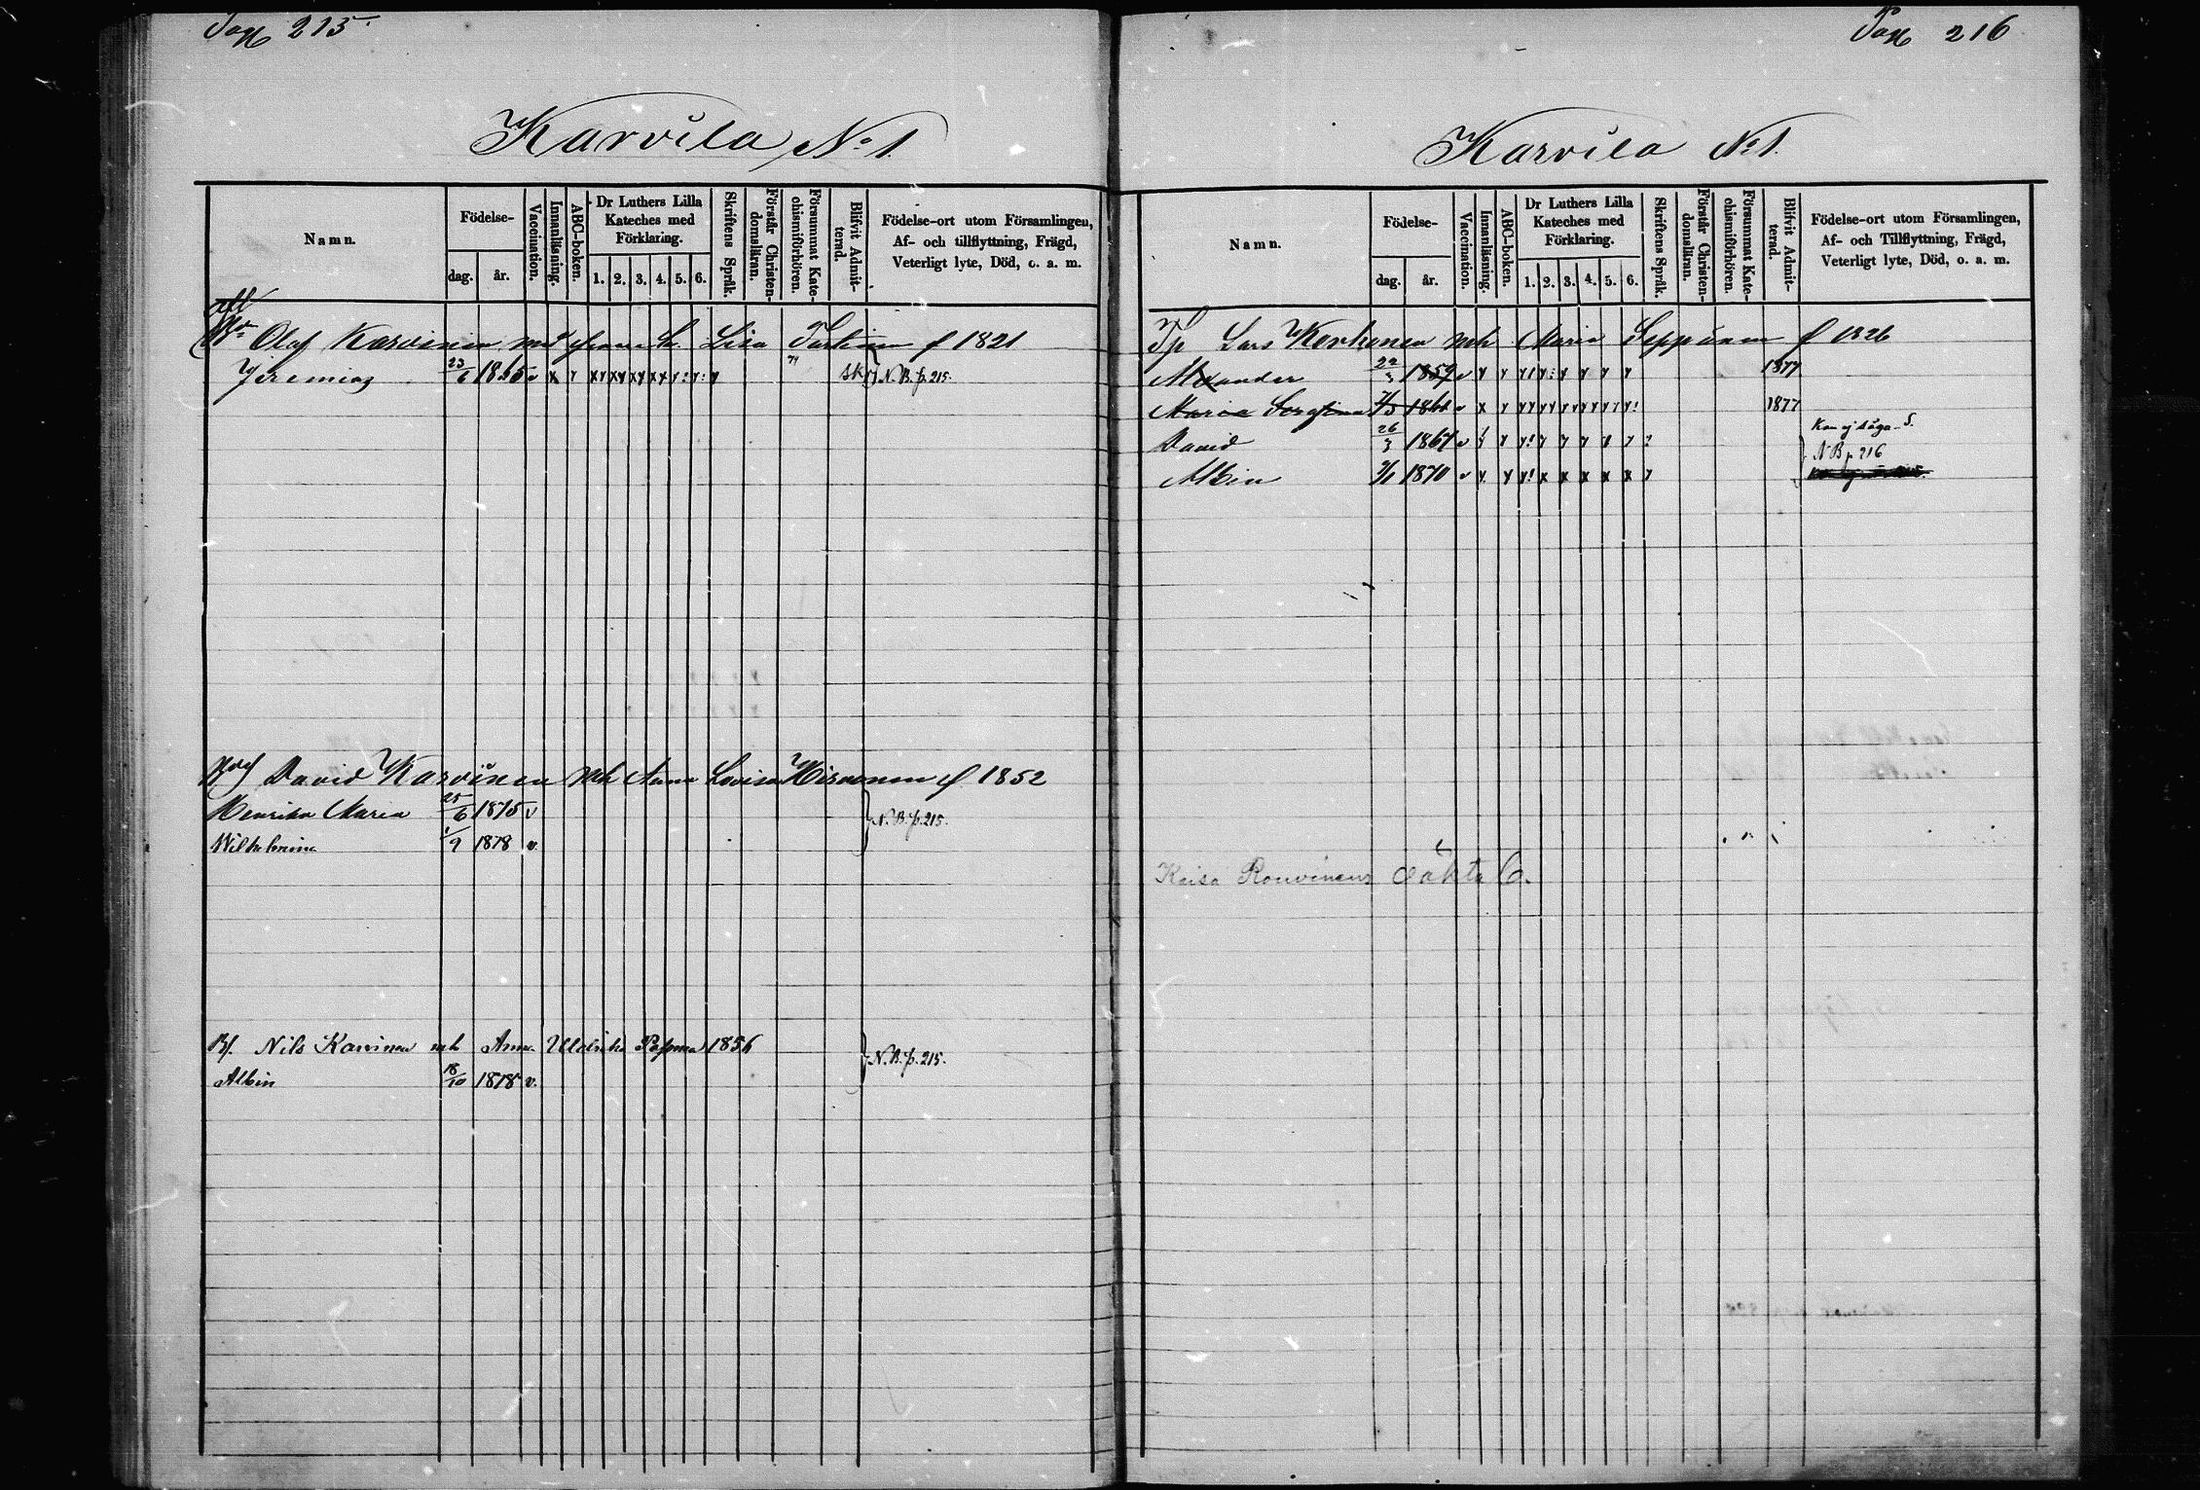 Pag 215.
Karvila No 1.
Namn.
Födelse-
dag.
år.
Vaccination.
Innanläsning.
ABC-boken.
Dr Luthers Lilla
Kateches med
Förklaring.
1. 2. 3. 4. 5. 6.
Skriftens Språk.
Förstår Christen-
domsläran.
Försummat Kate-
chismiförhören.
Blifvit Admit-
terad.
Födelse-ort utom Församlingen,
Af- och tillflyttning, Frägd,
Veterligt lyte, Död, o. a. m.
Olof Karvinen Lisa f 1821
Jeremias 23/6 1865 v N.B. p. 215.
David Karvinen mh Anna Lovisa f 1852
Henrika Maria 25/6 1875 v N.B. p. 215.
Wilhelmina 1/9 1878 v.
Nils Karvinen mh Anna Ulrika 1856
N.B. p. 215.
Albin 18/10 1878 v.
Pag 216
Karvila No 1.
Namn.
Födelse-
dag.
år.
Vaccination.
Innanläsning.
ABC-boken.
Dr Luthers Lilla
Kateches med
Förklaring.
1. 2. 3. 4. 5. 6.
Skriftens Språk.
Förstår Christen-
domsläran.
Försummat Kate-
chismiförhören.
Blifvit Admit-
terad.
Födelse-ort utom Församlingen,
Af- och Tillflyttning, Frägd,
Veterligt lyte, Död, o. a. m.
Lars Korhonen mh Maria Seppänen f 1826
Alexander 1859 v 1877
Maria Serafina 1861 v 1877
David 1867 v
N B p 216
Albin 1870 v
Kaisa Rouvinens